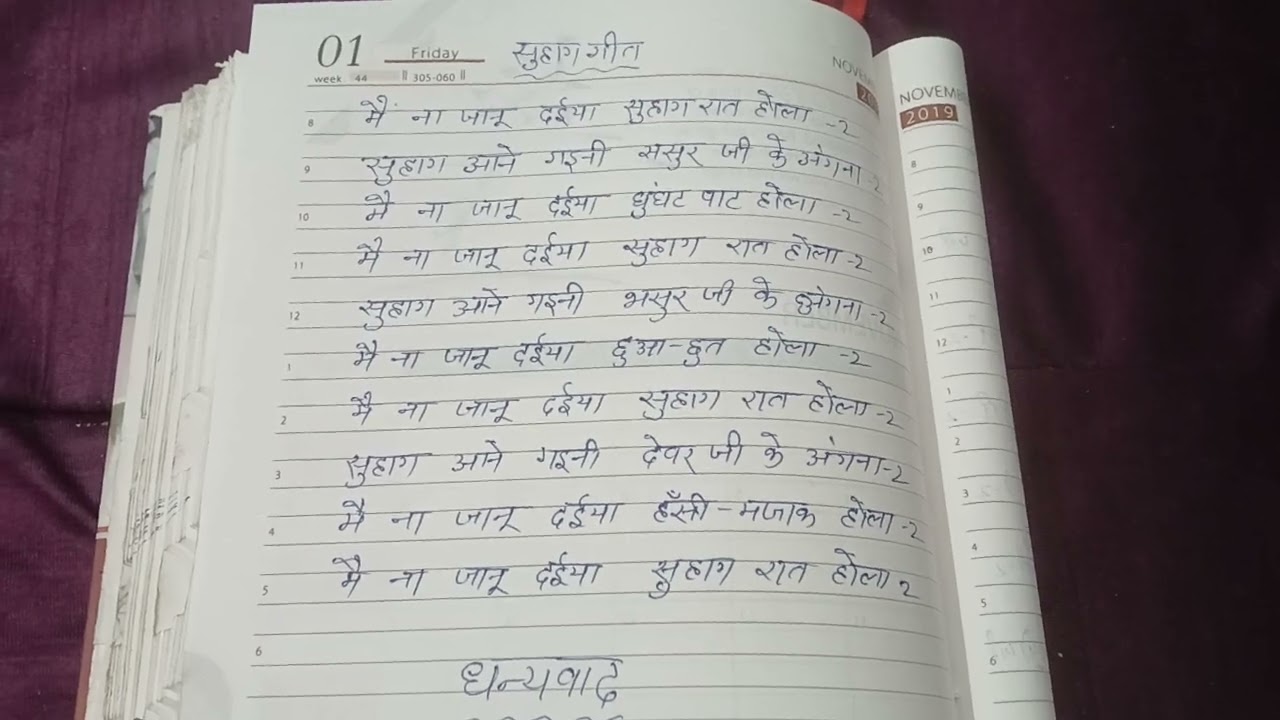 01 Friday सुहाग गीत
week 44 305-060
NOVEM
20
NOVEMB
2019
8 मैं ना जानू दईया सुहाग रात होला -2
9 सुहाग आने गइनी ससुर जी के अंगना -2
10 मै ना जानू दईया घुंघट पाट होला -2
11 मै ना जानू दईया सुहाग रात होला -2
12 सुहाग आने गइनी भसुर जी के अंगना -2
1 मै ना जानू दईया छुआ-छुत होला -2
2 मै ना जानू दईया सुहाग रात होला -2
3 सुहाग आने गइनी देवर जी के अंगना -2
4 मै ना जानू दईया हँसी-मजाक होला -2
5 मै ना जानू दईया सुहाग रात होला 2
6
धन्यवाद
8
9
10
11
12
1
2
3
4
5
6